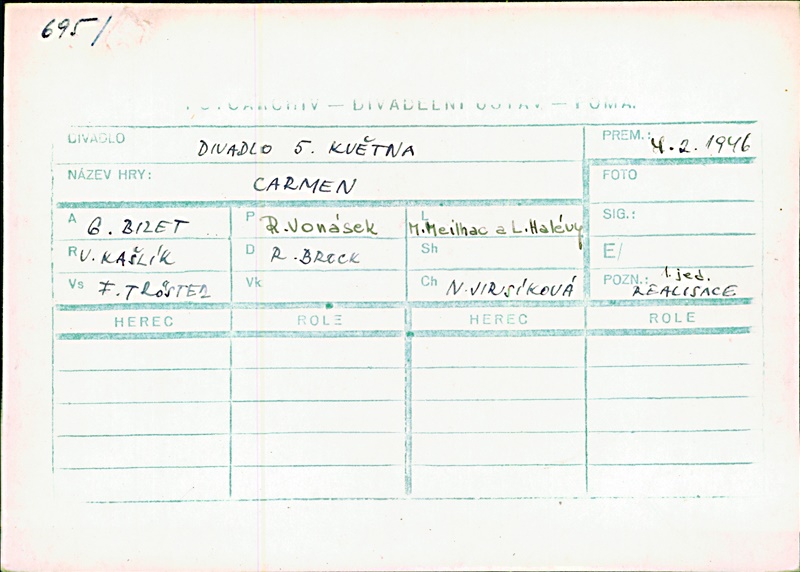 695/
FOTOARCHIV — DIVADELNÍ ÚSTAV — FOMA
DIVADLO DIVADLO 5. KVĚTNA PREM.: 4.2.1946
NÁZEV HRY: CARMEN FOTO
A G. BIZET P R. Vonásek L M. Meilhac a L. Halévy SIG.:
R V. KAŠLÍK D R. BROCK Sh E/
Vs F. TRÖSTER Vk Ch N. JIRSÍKOVÁ POZN.: 1. jed. REALISACE
HEREC ROLE HEREC ROLE